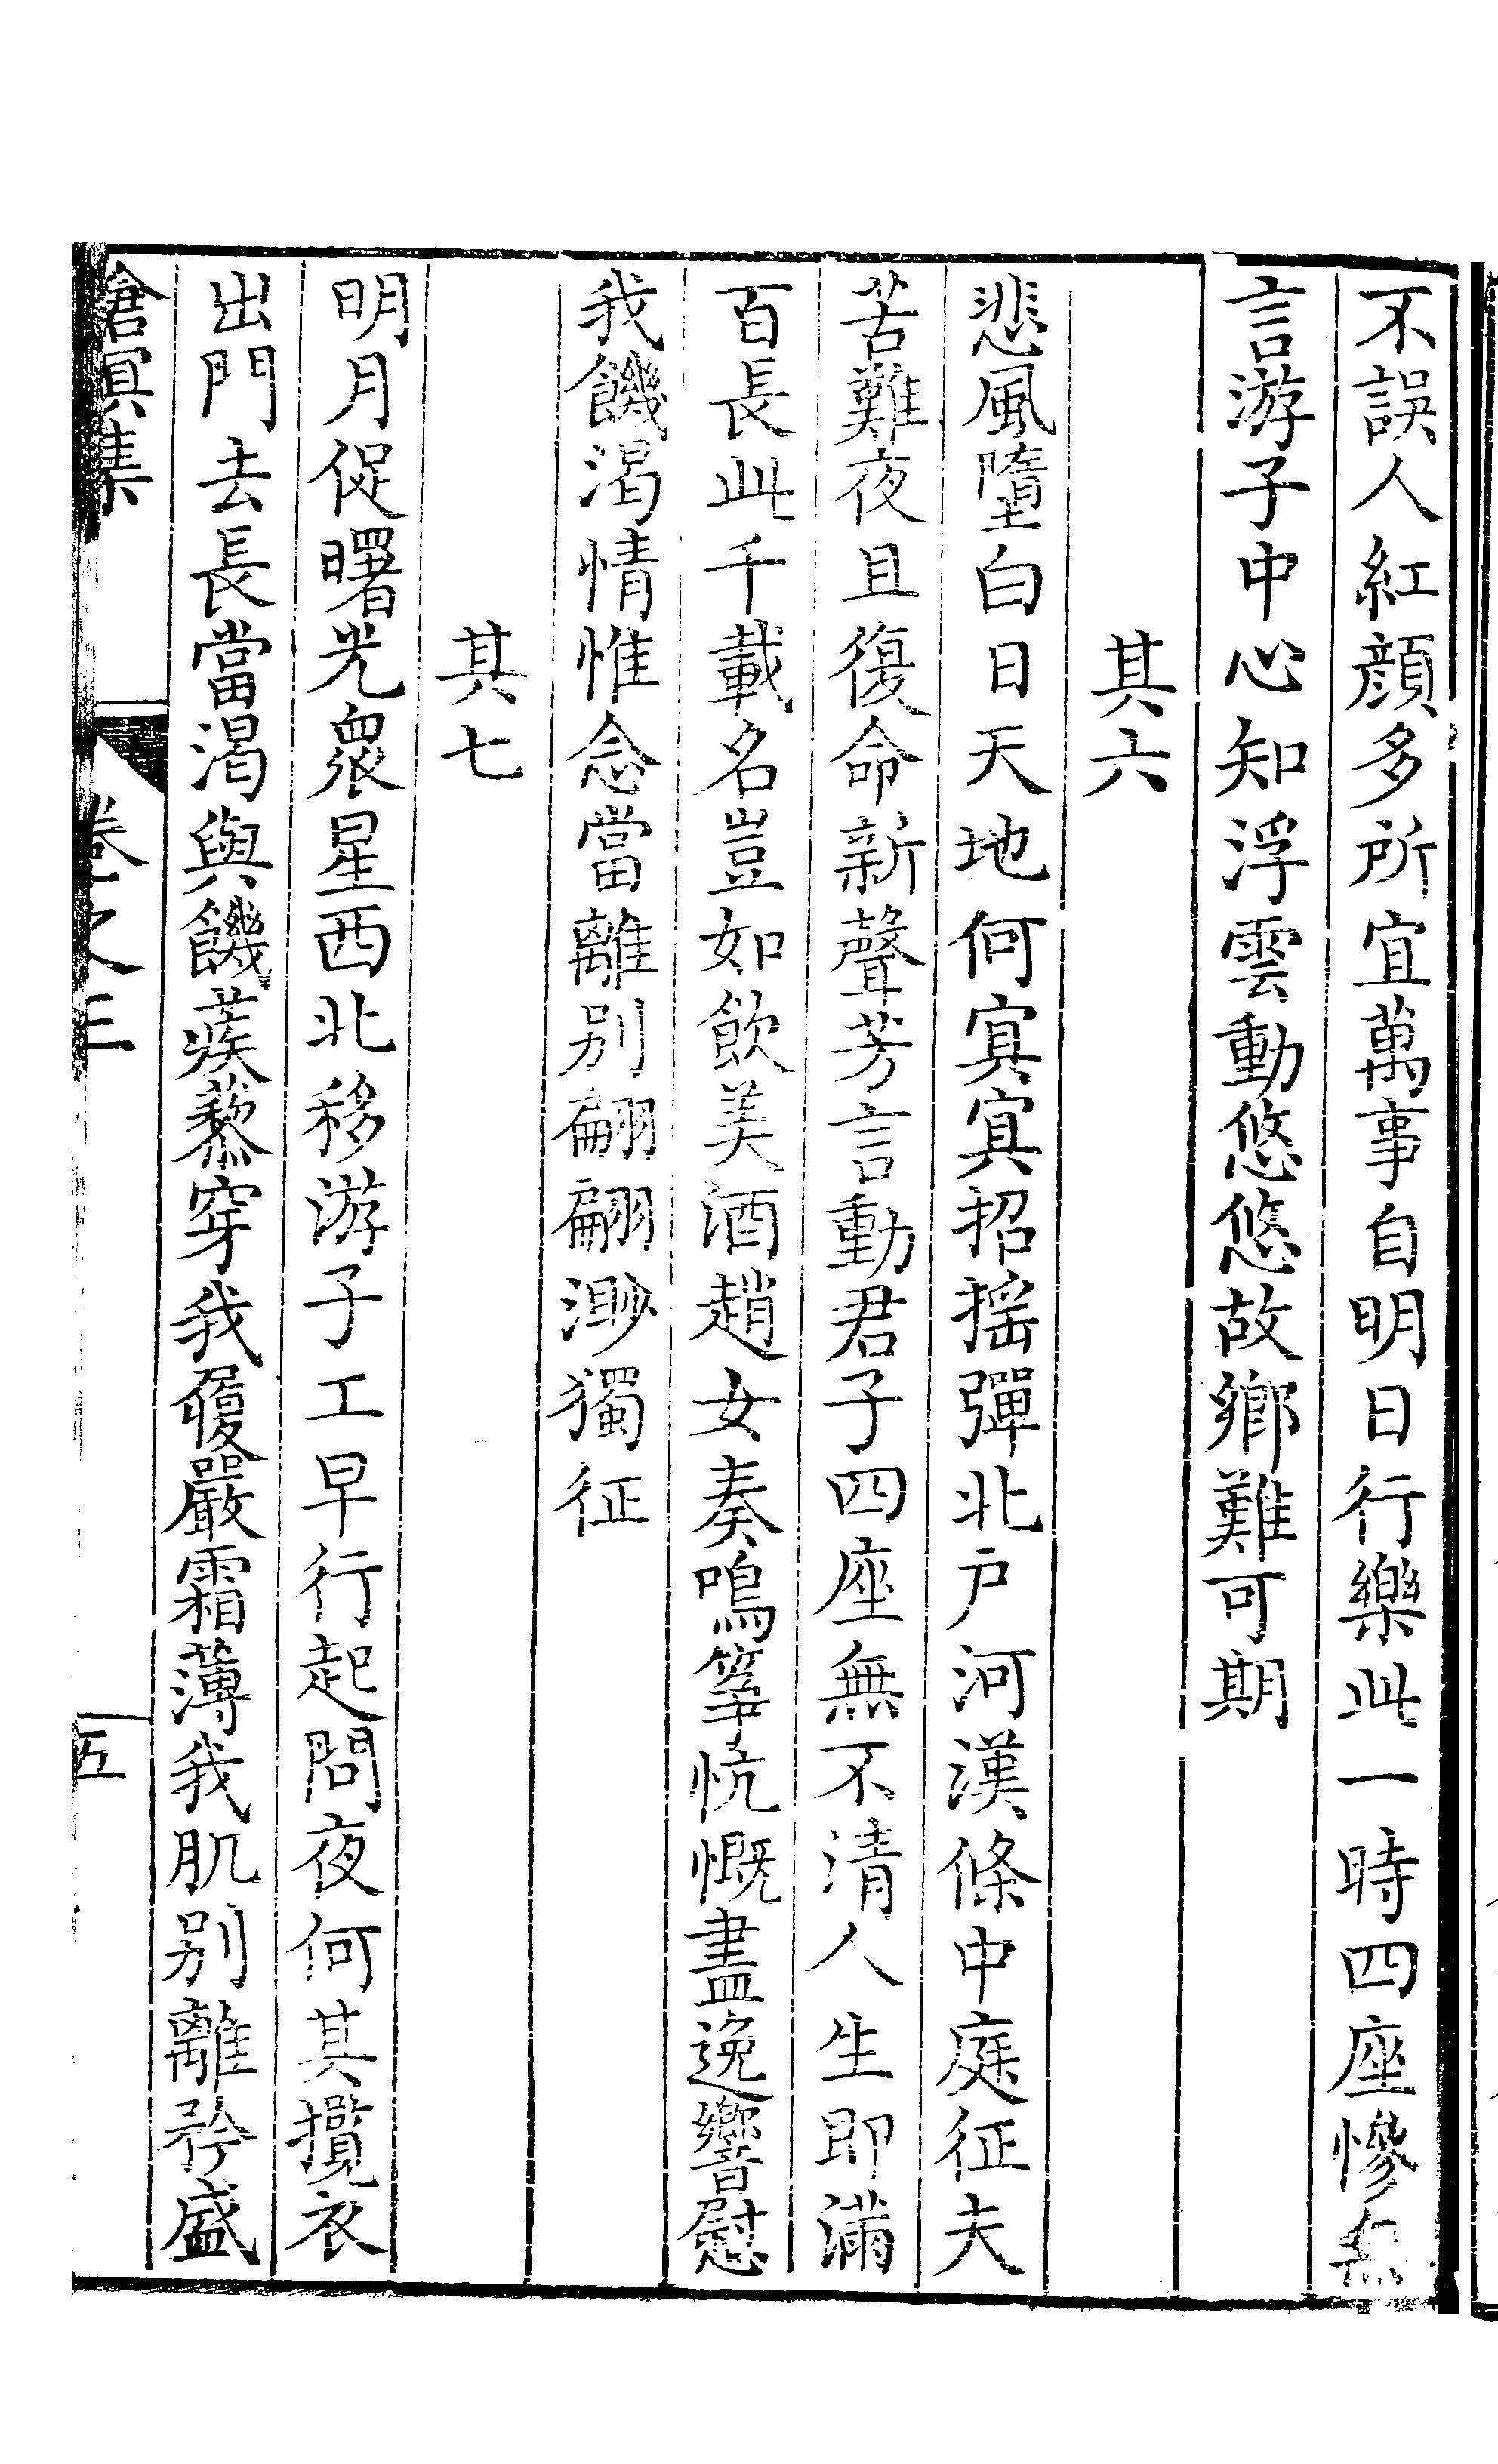 不誤人紅顏多所宜萬事自明日行樂此一時四座慘無
言游子中心知浮雲動悠悠故鄉難可期
其六
悲風墮白日天地何寞寞招搖彈北戶河漢條中庭征夫
苦難夜且復命新聲芳言動君子四座無不清人生即滿
百長此千載名豈如飲美酒趙女奏鳴箏忼慨盡逸響慰
我饑渴情惟念當離別翩翩渺獨征
其七
明月促曙光眾星西北移游子工早行起問夜何其攬衣
出門去長當渴與饑蒺藜穿我履嚴霜薄我肌別離矜盛
滄溟集
卷之三
五